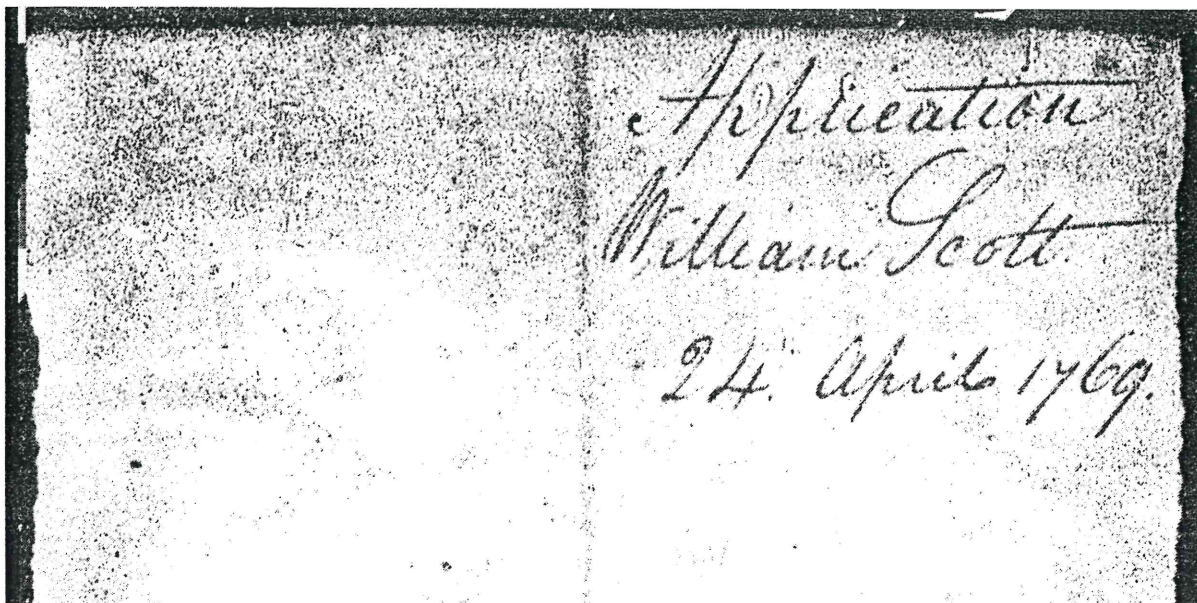 Application
William Scott
24. April 1769.